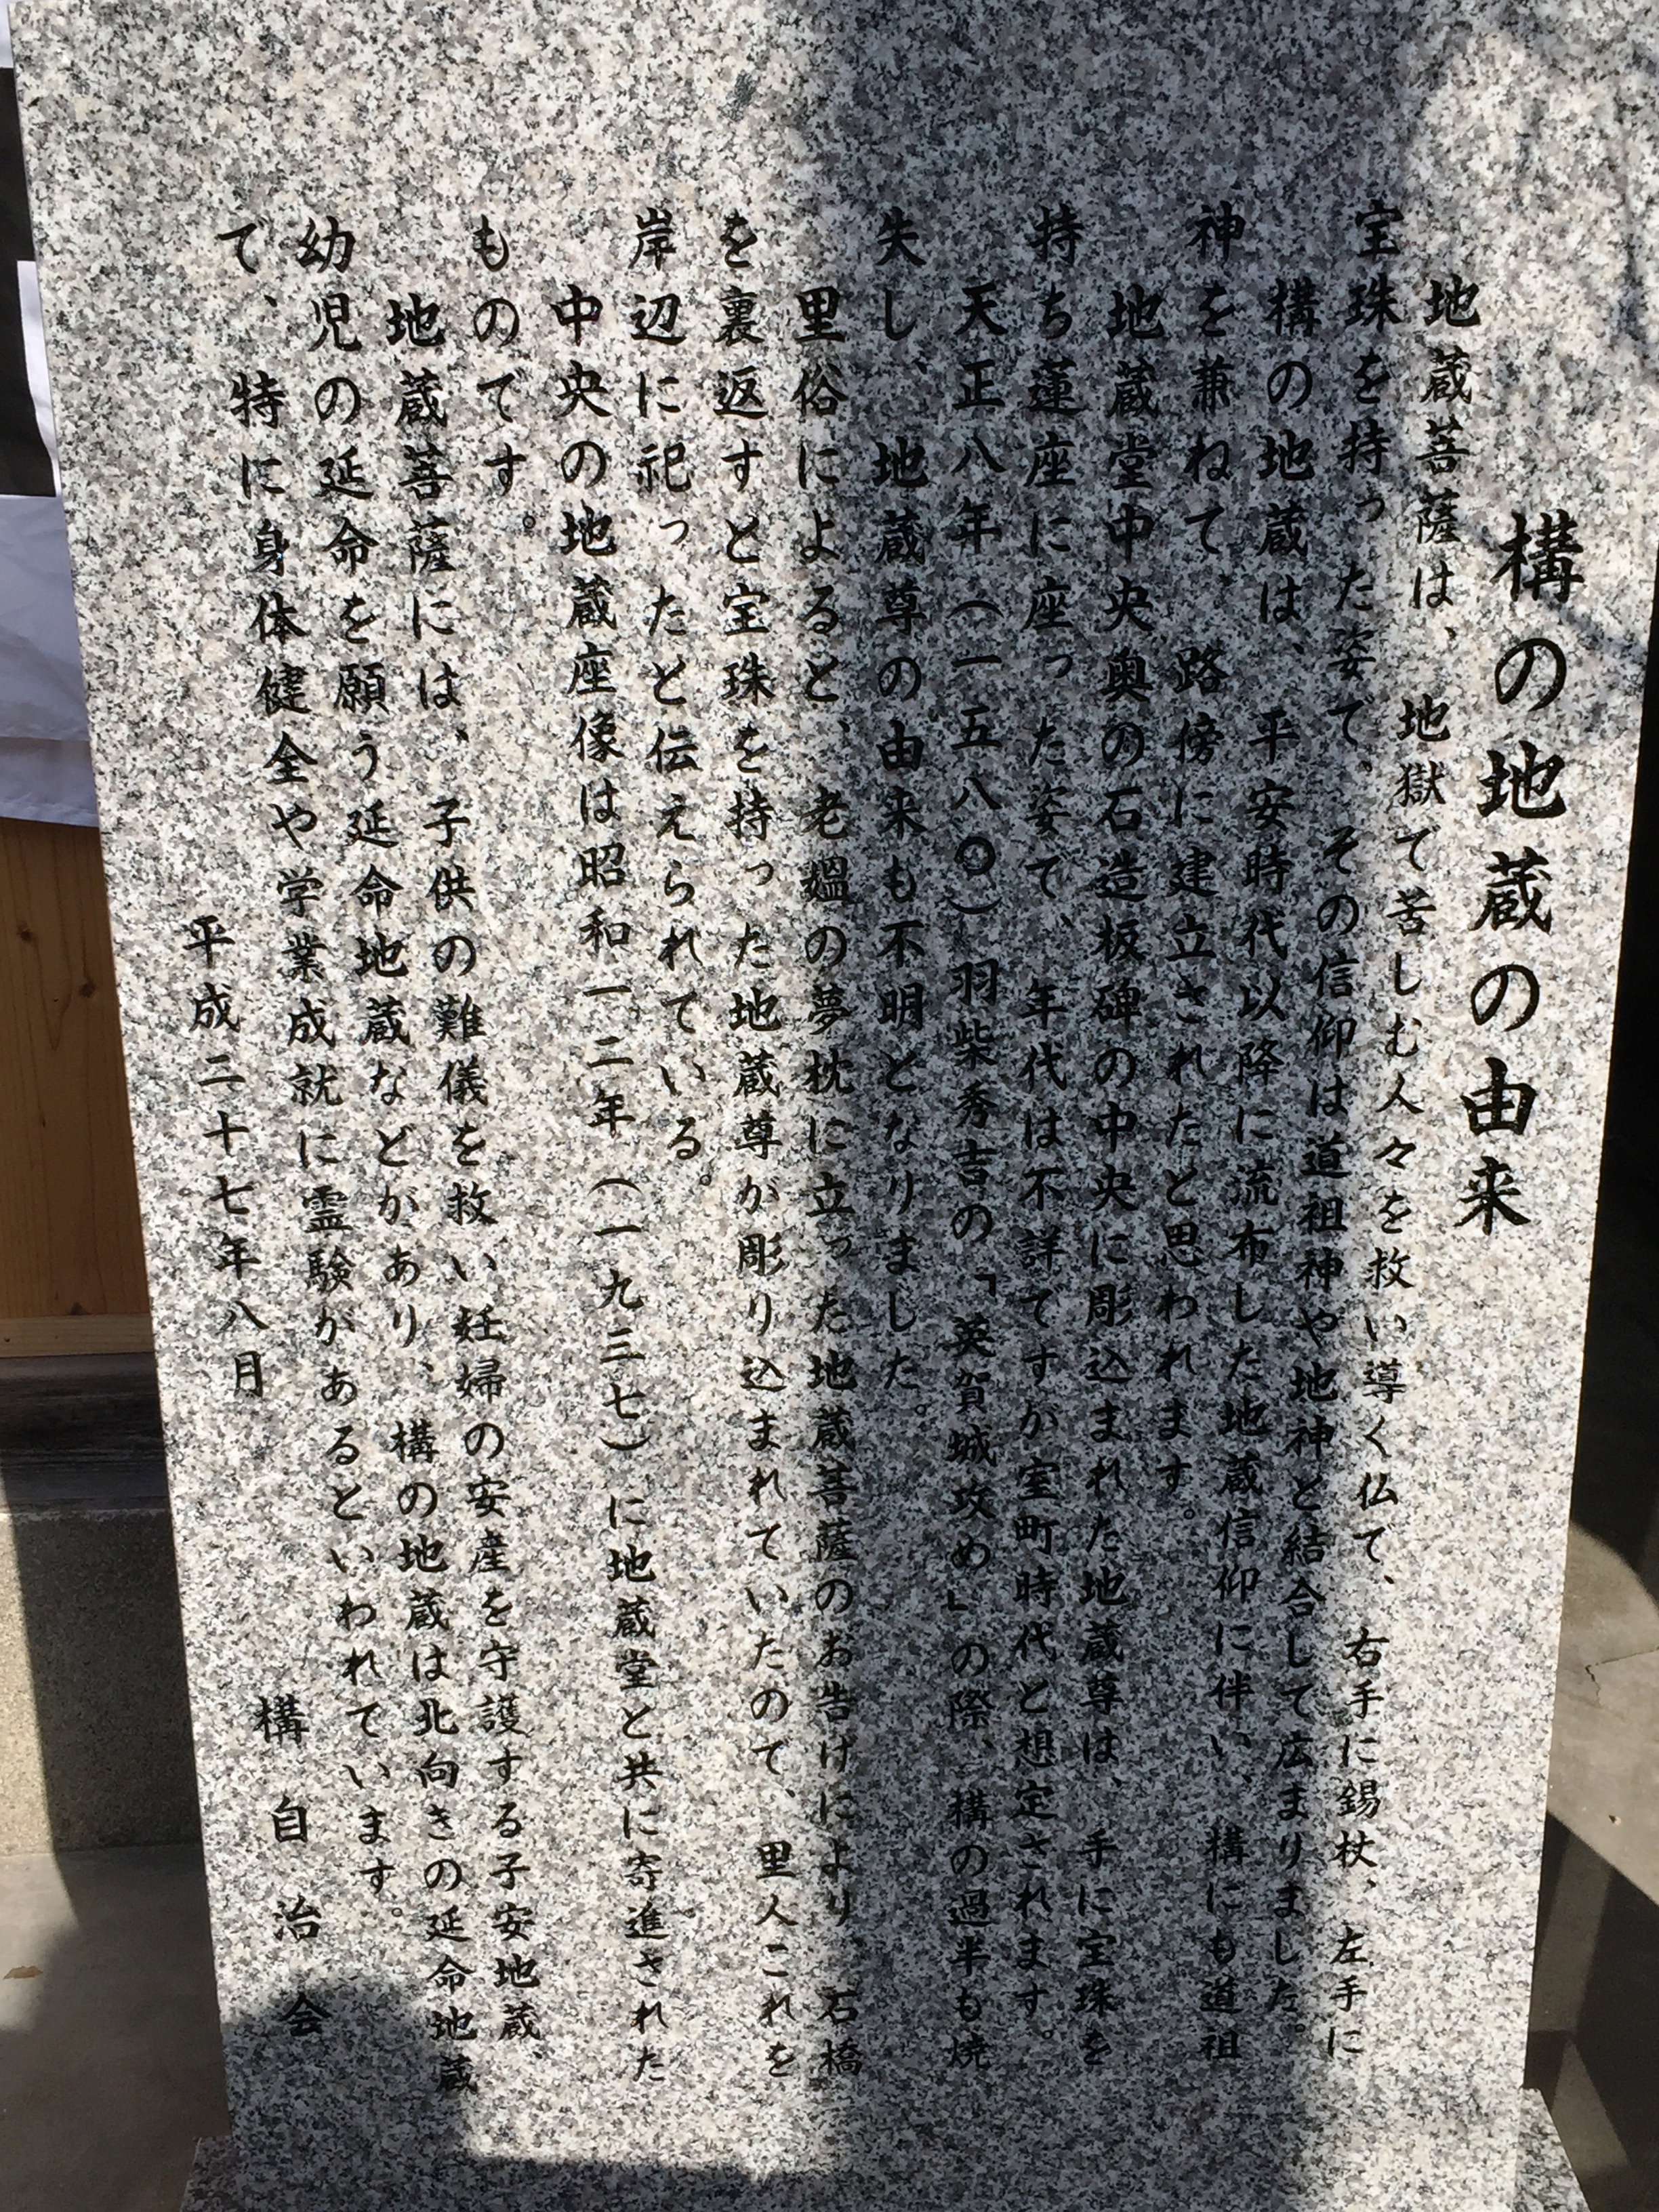 構の地蔵の由来
地蔵菩薩は、地獄で苦しむ人々を救い導く仏で、右手に錫杖、左手に
宝珠を持った姿で、その信仰は道祖神や地神と結合して広まりました。
構の地蔵は、平安時代以降に流布した地蔵信仰に伴い、構にも道祖
神を兼ねて、路傍に建立されたと思われます。
地蔵堂中央奥の石造板碑の中央に彫込まれた地蔵尊は、手に宝珠を
持ち蓮座に座った姿で、年代は不詳ですが室町時代と想定されます。
天正八年(一五八〇)羽柴秀吉の「英賀城攻め」の際、構の過半も焼
失し、地蔵尊の由来も不明となりました。
里俗によると、老媼の夢枕に立った地蔵菩薩のお告げにより、石橋
を裏返すと宝珠を持った地蔵尊が彫り込まれていたので、里人これを
岸辺に祀ったと伝えられている。
中央の地蔵座像は昭和一二年(一九三七)に地蔵堂と共に寄進された
ものです。
地蔵菩薩には、子供の難儀を救い妊婦の安産を守護する子安地蔵、
幼児の延命を願う延命地蔵などがあり、構の地蔵は北向きの延命地蔵
で、特に身体健全や学業成就に霊験があるといわれています。
平成二十七年八月 構自治会